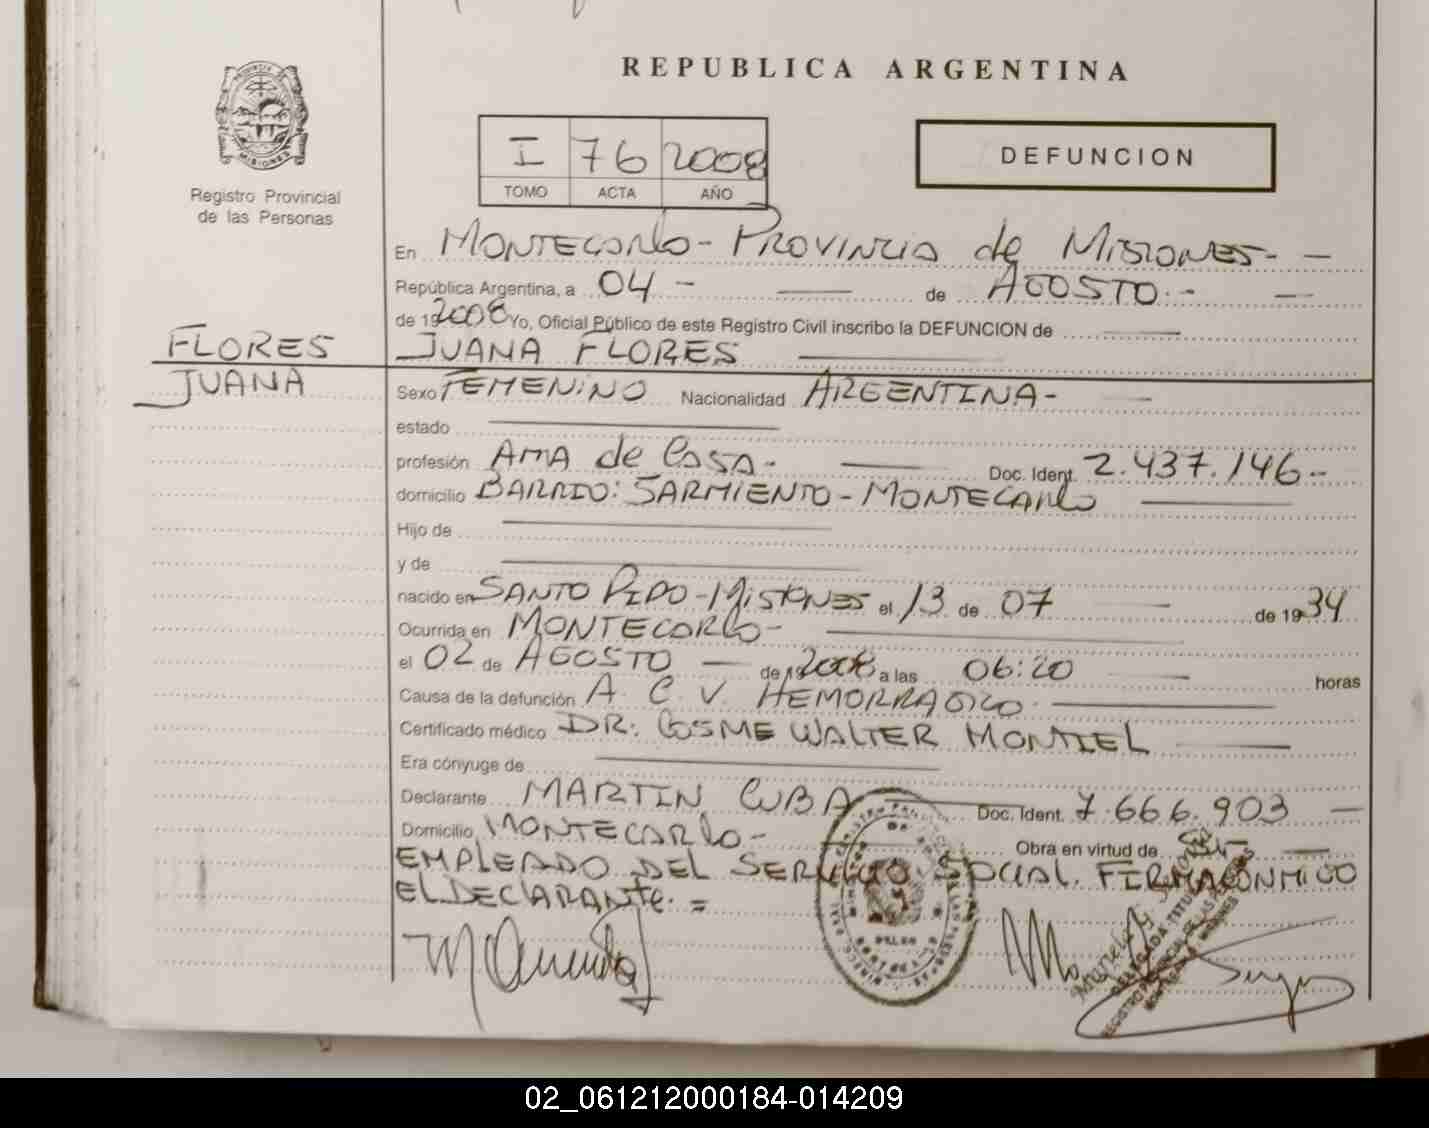 REPUBLICA ARGENTINA
PROVINCIA DE
MISIONES
Registro Provincial
de las Personas
I 76 2008
TOMO ACTA AÑO
DEFUNCION
En MONTECARLO - PROVINCIA de MISIONES - -
República Argentina, a 04 - de AGOSTO - -
de 192008 Yo, Oficial Público de este Registro Civil inscribo la DEFUNCION de
FLORES
JUANA
JUANA FLORES
Sexo FEMENINO Nacionalidad ARGENTINA -
estado
profesión AMA de CASA - Doc. Ident. 2.437.146 -
domicilio BARRIO: SARMIENTO - MONTECARLO
Hijo de
y de
nacido en SANTO PIPO - MISIONES el 13 de 07 de 1934
Ocurrida en MONTECARLO -
el 02 de AGOSTO - de 192008 a las 06:20 horas
Causa de la defunción A C V HEMORRAGICO
Certificado médico DR: COSME WALTER MONTIEL
Era cónyuge de
Declarante MARTIN CUBA Doc. Ident. 7.666.903
Domicilio MONTECARLO - Obra en virtud de
EMPLEADO DEL SERVICIO SOCIAL. FIRMA CONMIGO
EL DECLARANTE. =
DELEGADA TITULAR
REGISTRO PROVINCIAL DE LAS PERSONAS
MONTECARLO - MISIONES
02_061212000184-014209